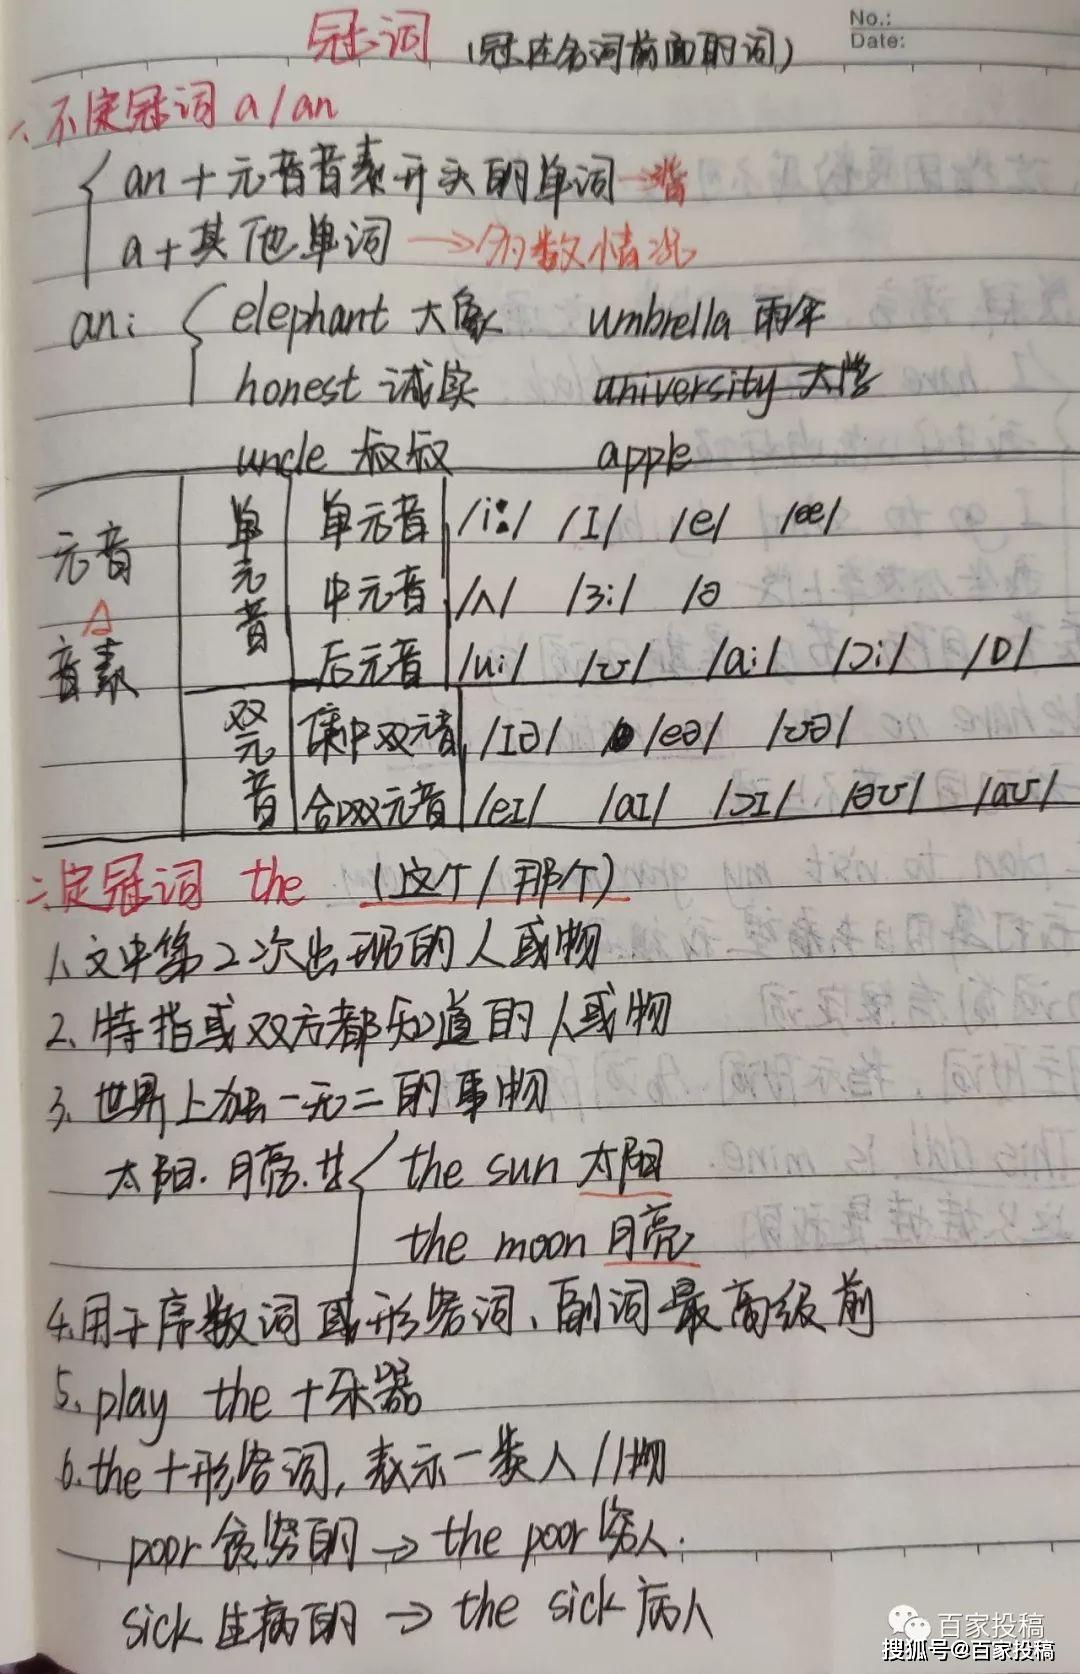 No.:
Date:
冠词 (冠在名词前面的词)
一、不定冠词 a/an
an+元音音素开头的单词→
a+其他单词 →多数情况
an: elephant 大象 umbrella 雨伞
honest 诚实 university 大学
uncle 叔叔 apple
元音音素 单元音 单元音 /i:/ /I/ /e/ /æ/
中元音 /ʌ/ /3:/ /ə
后元音 /u:/ /ʊ/ /a:/ /ɔ:/ /ɒ/
双元音 集中双元音 /Iə/ /eə/ /ʊə/
合口双元音 /eI/ /aI/ /ɔI/ /əʊ/ /aʊ/
二、定冠词 the (这个/那个)
1、文中第2次出现的人或物
2、特指或双方都知道的人或物
3、世界上独一无二的事物
太阳.月亮. the sun 太阳
the moon 月亮
4、用于序数词或形容词、副词最高级前
5、play the +乐器
6、the +形容词,表示一类人//物
poor 贫穷的→the poor 穷人.
sick 生病的→the sick 病人
百家投稿
搜狐号@百家投稿